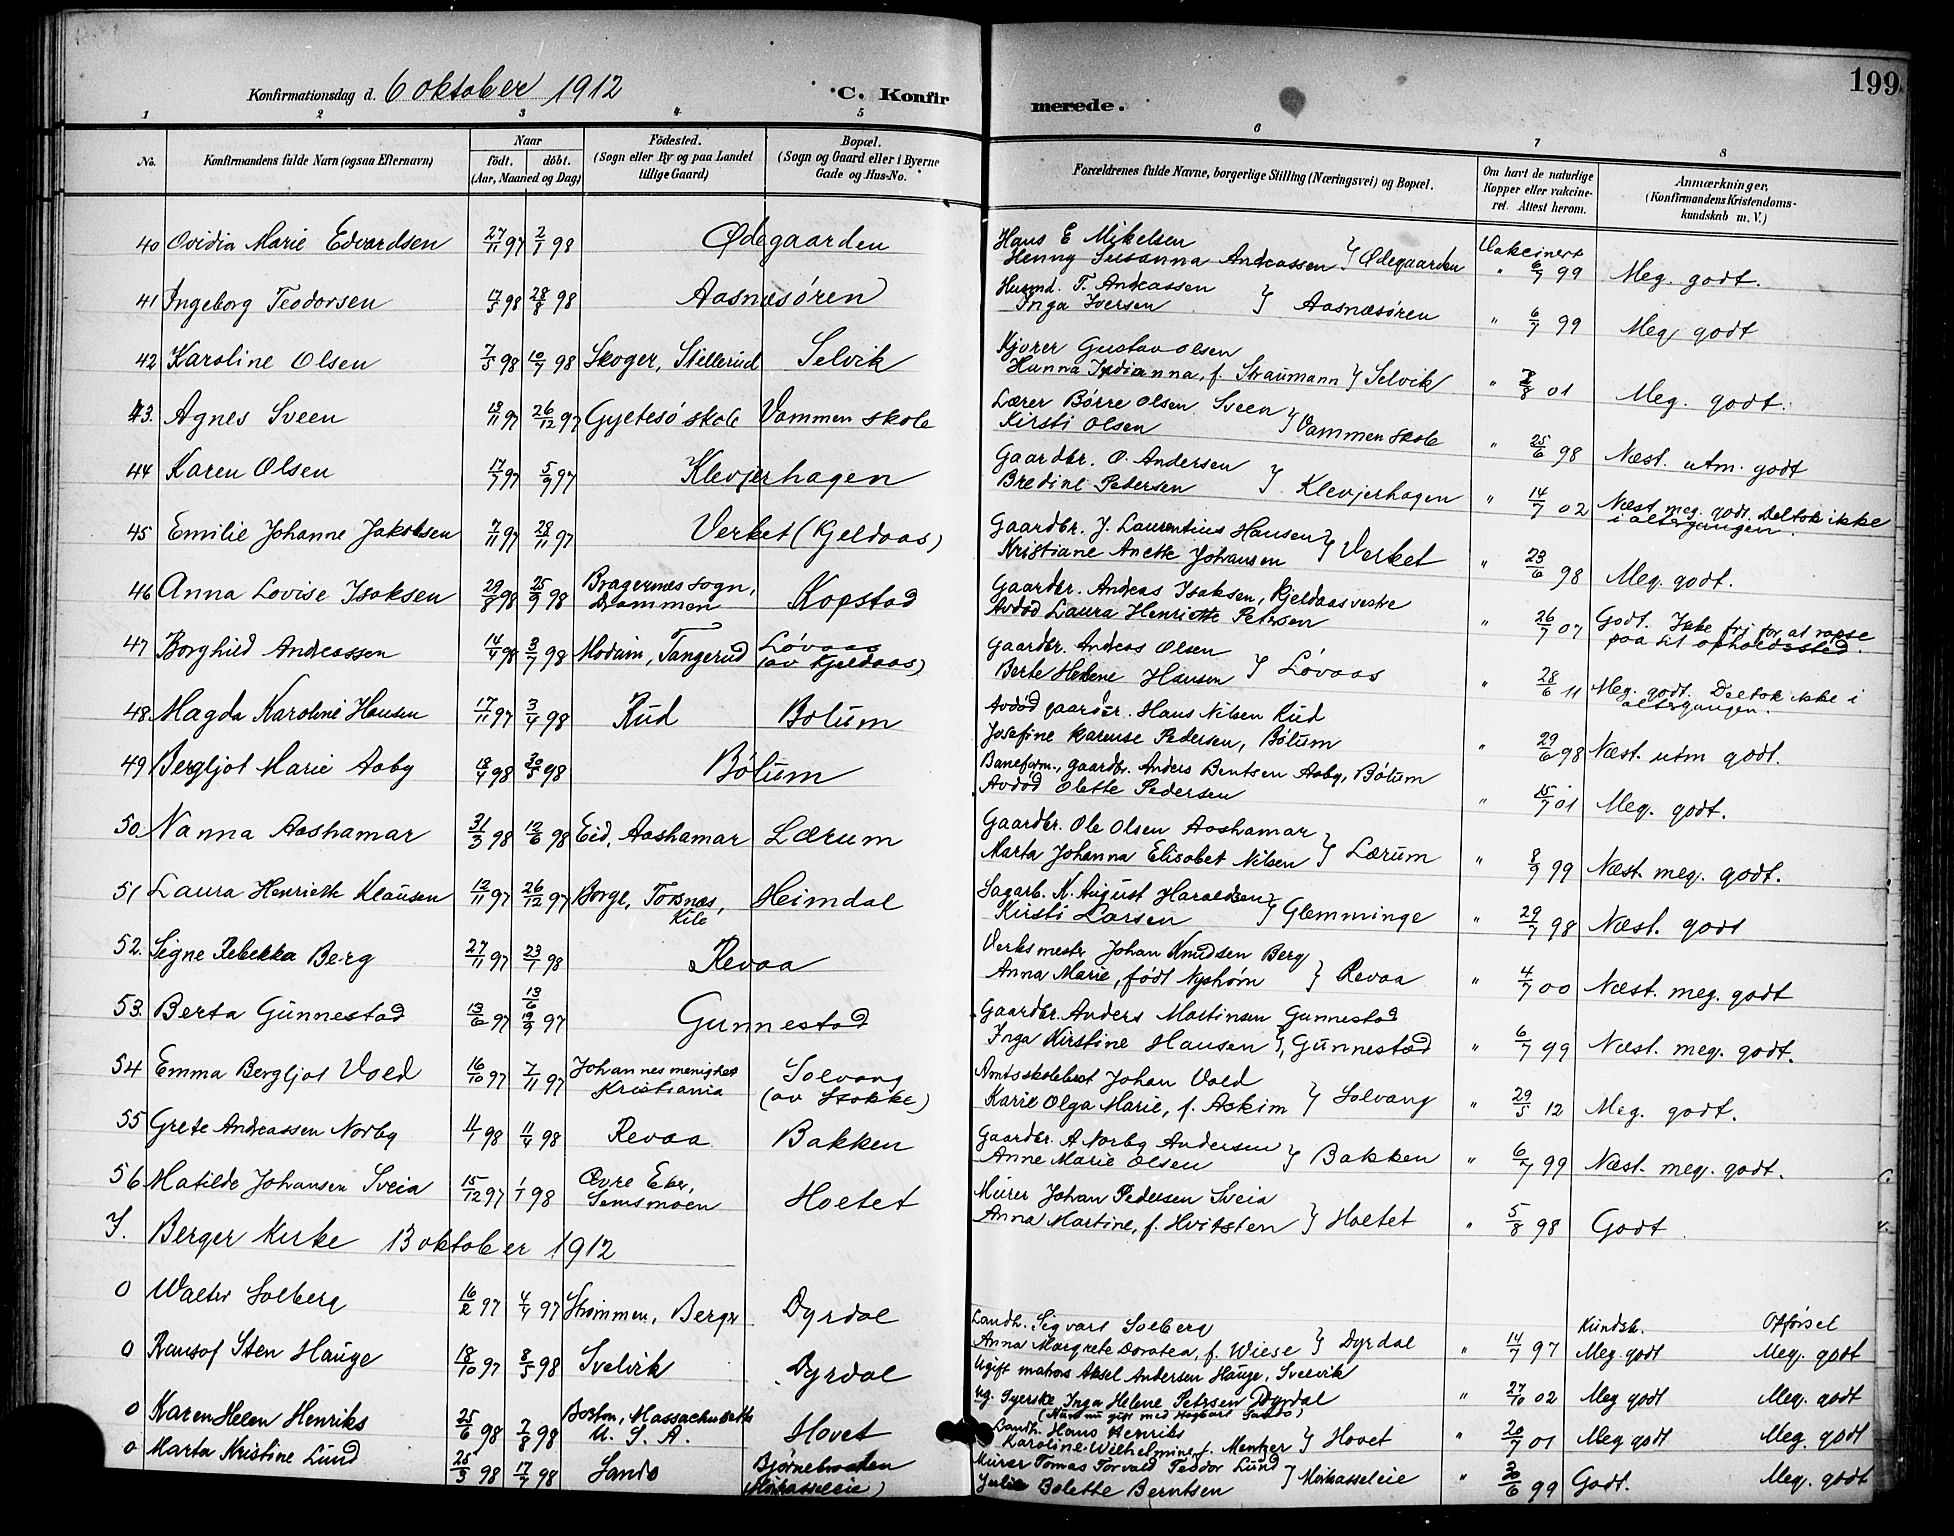 199
Konfirmationsdag d. 6 oktober 1912 C. Konfirmerede.
1 2 3 4 5 6 7 8
No. Konfirmandens fulde Navn (ogsaa Efternavn) Naar födt. döbt. (Aar, Maaned og Dag) Födested. (Sogn eller By og paa Landet tillige Gaard) Bopæl. (Sogn og Gaard eller i Byerne Gade og Hus-No. Forældrenes fulde Navne, borgerlige Stilling (Næringsvei) og Bopæl. Om havt de naturlige Kopper eller vakcineret. Attest herom. Anmærkninger. (Konfirmandens Kristendomskundskab m. V.)
40 Ovidia Marie Edvardsen 27/11 97 2/1 98 Ødegaarden Hans E Mikelsen Vakcinert
Henny Susanna Andreassen } Ødegaarden " 6/7 99 Meg. godt.
41 Ingeborg Teodorsen 17/5 98 28/8 98 Aasnæsøren Husmd. T. Andreassen
Inga Iversen } Aasnæsøren " 6/7 99 Meg godt
42 Karoline Olsen 7/5 98 10/7 98 Skoger, Stillerud Selvik Kjører Gustav Olsen
Hanna Indianna, f. Straumann } Selvik " 8 01 Meg. godt.
43. Agnes Sveen 18/11 97 26/12 97 Gyetesö skole Vammen skole Lærer Börre Olsen Sveen
Kirsti Olsen } Vammen skole " 25/6 98 Næst. utm. godt
44 Karen Olsen 17/7 97 5/9 97 Klevjerhagen Gaardbr. O. Andersen
Bredine Pedersen } Klevjerhagen " 14/7 02 Næst meg. godt. Deltok ikke
i altergangen.
45 Emilie Johanne Jakobsen 7/11 97 28/11 97 Verket (Gjeldaas) Gaardbr. J. Laurentius Hansen
Kristiane Anette Johansen } Verket " 23/6 98 Meg. godt.
46 Anna Lovise Isaksen 29/8 98 25/9 98 Bragernæs sogn, Drammen Kopstad Gaardbr. Andreas Isaksen, Kjeldaas vestre
Avdød Laura Henriette Petersen " 26/7 07 Godt. Ikke fri for at rapse
paa sit opholdssted.
47 Borghild Andreassen 14/4 98 3/7 98 Modum, Tangerud Løvaas (av Kjeldaas) Gaardbr. Andreas Olsen
Berte Helene Hansen } Løvaas " 28/6 11 Meg. godt. Deltok ikke i
altergangen.
48. Magda Karoline Hansen 17/11 97 3/4 98 Rud Bolum Avdød gaardbr. Hans Nilsen Rud
Josefine Karense Pedersen, Bølum " 29/6 98 Næst utm godt.
49 Bergljot Marie Aaby 18/4 98 30/5 98 Bølum Baneform., gaardbr. Anders Bentsen Aaby, Bölum
Avdød Olette Pedersen " 15/7 01 Meg. godt.
50. Nanna Aashamar 31/3 98 12/6 98 Eid, Aashamar Lærum Gaardbr. Ole Olsen Aashamar
Marta Johanna Elisabet Nilsen } Lærum " 8/9 99 Næst. meg. godt.
51 Laura Henriette Klausen 12/11 97 26/12 97 Borge, Torsnæs, Kile Heimdal Sagarb. K. August Haraldsen
Kirsti Larsen } Glemminge " 29/7 98 Næst. godt
52. Signe Rebekka Berg 27/11 97 23/1 98 Revaa Verksmestr Johan Knudsen Berg
Anna Marie, født Nyhörn } Revaa " 4/7 00 Næst. meg. godt
53. Berta Gunnestad 13/6 97 13/6 19/9 97 Gunnestad Gaardbr. Anders Martinsen Gunnestad
Inga Kirstine Hansen }, Gunnestad " 6/7 99 Næst. meg. godt.
54 Emma Bergljot Vold 16/10 97 7/11 97 Johannes menighet Kristiania Solvang (av Stokke) Amtsskolebest Johan Vold
Karie Olga Marie, f. Askim } Solvang " 29/5 12 Meg. godt.
55 Grete Andreassen Norby 11/1 98 11/4 98 Revaa Bakken Gaardbr. A Norby Andersen
Anne Marie Olsen } Bakken " 6/7 99 Næst. meg. godt.
56 Matilde Johansen Sveia 15/12 97 1/1 98 Øvre Eker, Semsmoen Hoetet Murer Johan Pedersen Sveia
Anna Martine, f. Hvitsten } Hoetet " 5/8 98 Godt
I. Berger Kirke 13 oktober 1912
0 Walter Solberg 16/2 97 4/4 97 Strømmen, Berger Dyrdal Landh. Sigvart Solberg Kundsk. Opførsel
Anna Margrete Dorotea, f. Wiese } Dyrdal " 14/7 97 Meg godt Meg. godt
0 Sten Hauge 18/10 97 8/5 98 Svelvik Dyrdal Ugift matros Aksel Andersen Hauge, Svelvik
ug. Syerske Inga Helene Petersen Dyrdal " 27/10 02 Meg godt Meg. godt
(nu gift med Hagbart Sando)
0 Karen Helen Henriks 25/6 98 7/8 98 Boston, Massachusetts U. S. A. Hovet Landh. Hans Henriks
Karoline Wilhelmine f. Mentzer } Hovet " 20/7 01 Meg godt Meg. godt
0 Marta Kristine Lund 25/3 98 17/7 98 Sando Bjørnebraaten (Mörkasseleie) Murer Tomas Torvald Teodor Lund
Julie Bolette Berntsen } Mörkasseleie " 30/6 99 Godt. Meg. godt